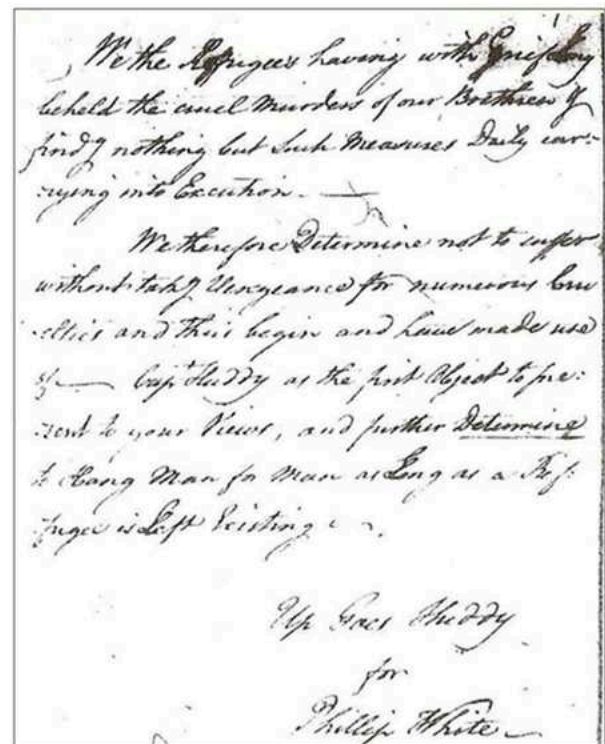 We the Refugees having with Grief Long
beheld the cruel Murders of our Brethren &
find.g nothing but Such Measures Daily car=
=rying into Execution. —
We therefore Determine not to suffer
without tak.g Vengeance for numerous Cru
=elties and thus begin and have made use
of — Cap.t Huddy as the first Object to pre=
=sent to your Views, and further Determine
to Hang Man for Man as Long as a Ref=
=fugee is Left Existing
Up Goes Huddy
for
Phillip White